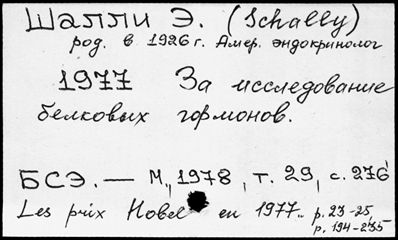 Шалли Э. (Schally)
род. в 1926 г. Амер. эндокринолог
1977 За исследование
белковых гормонов.
БСЭ. — М., 1978, т. 29, с. 276
Les prix Nobel en 1977.. p. 23-25,
p. 194-235